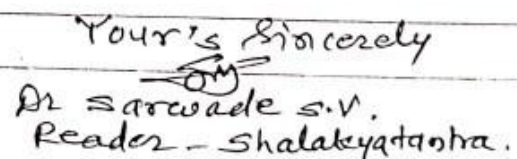 Your's Sincerely
Dr Sarwade S.V.
Reader - Shalakyatantra.